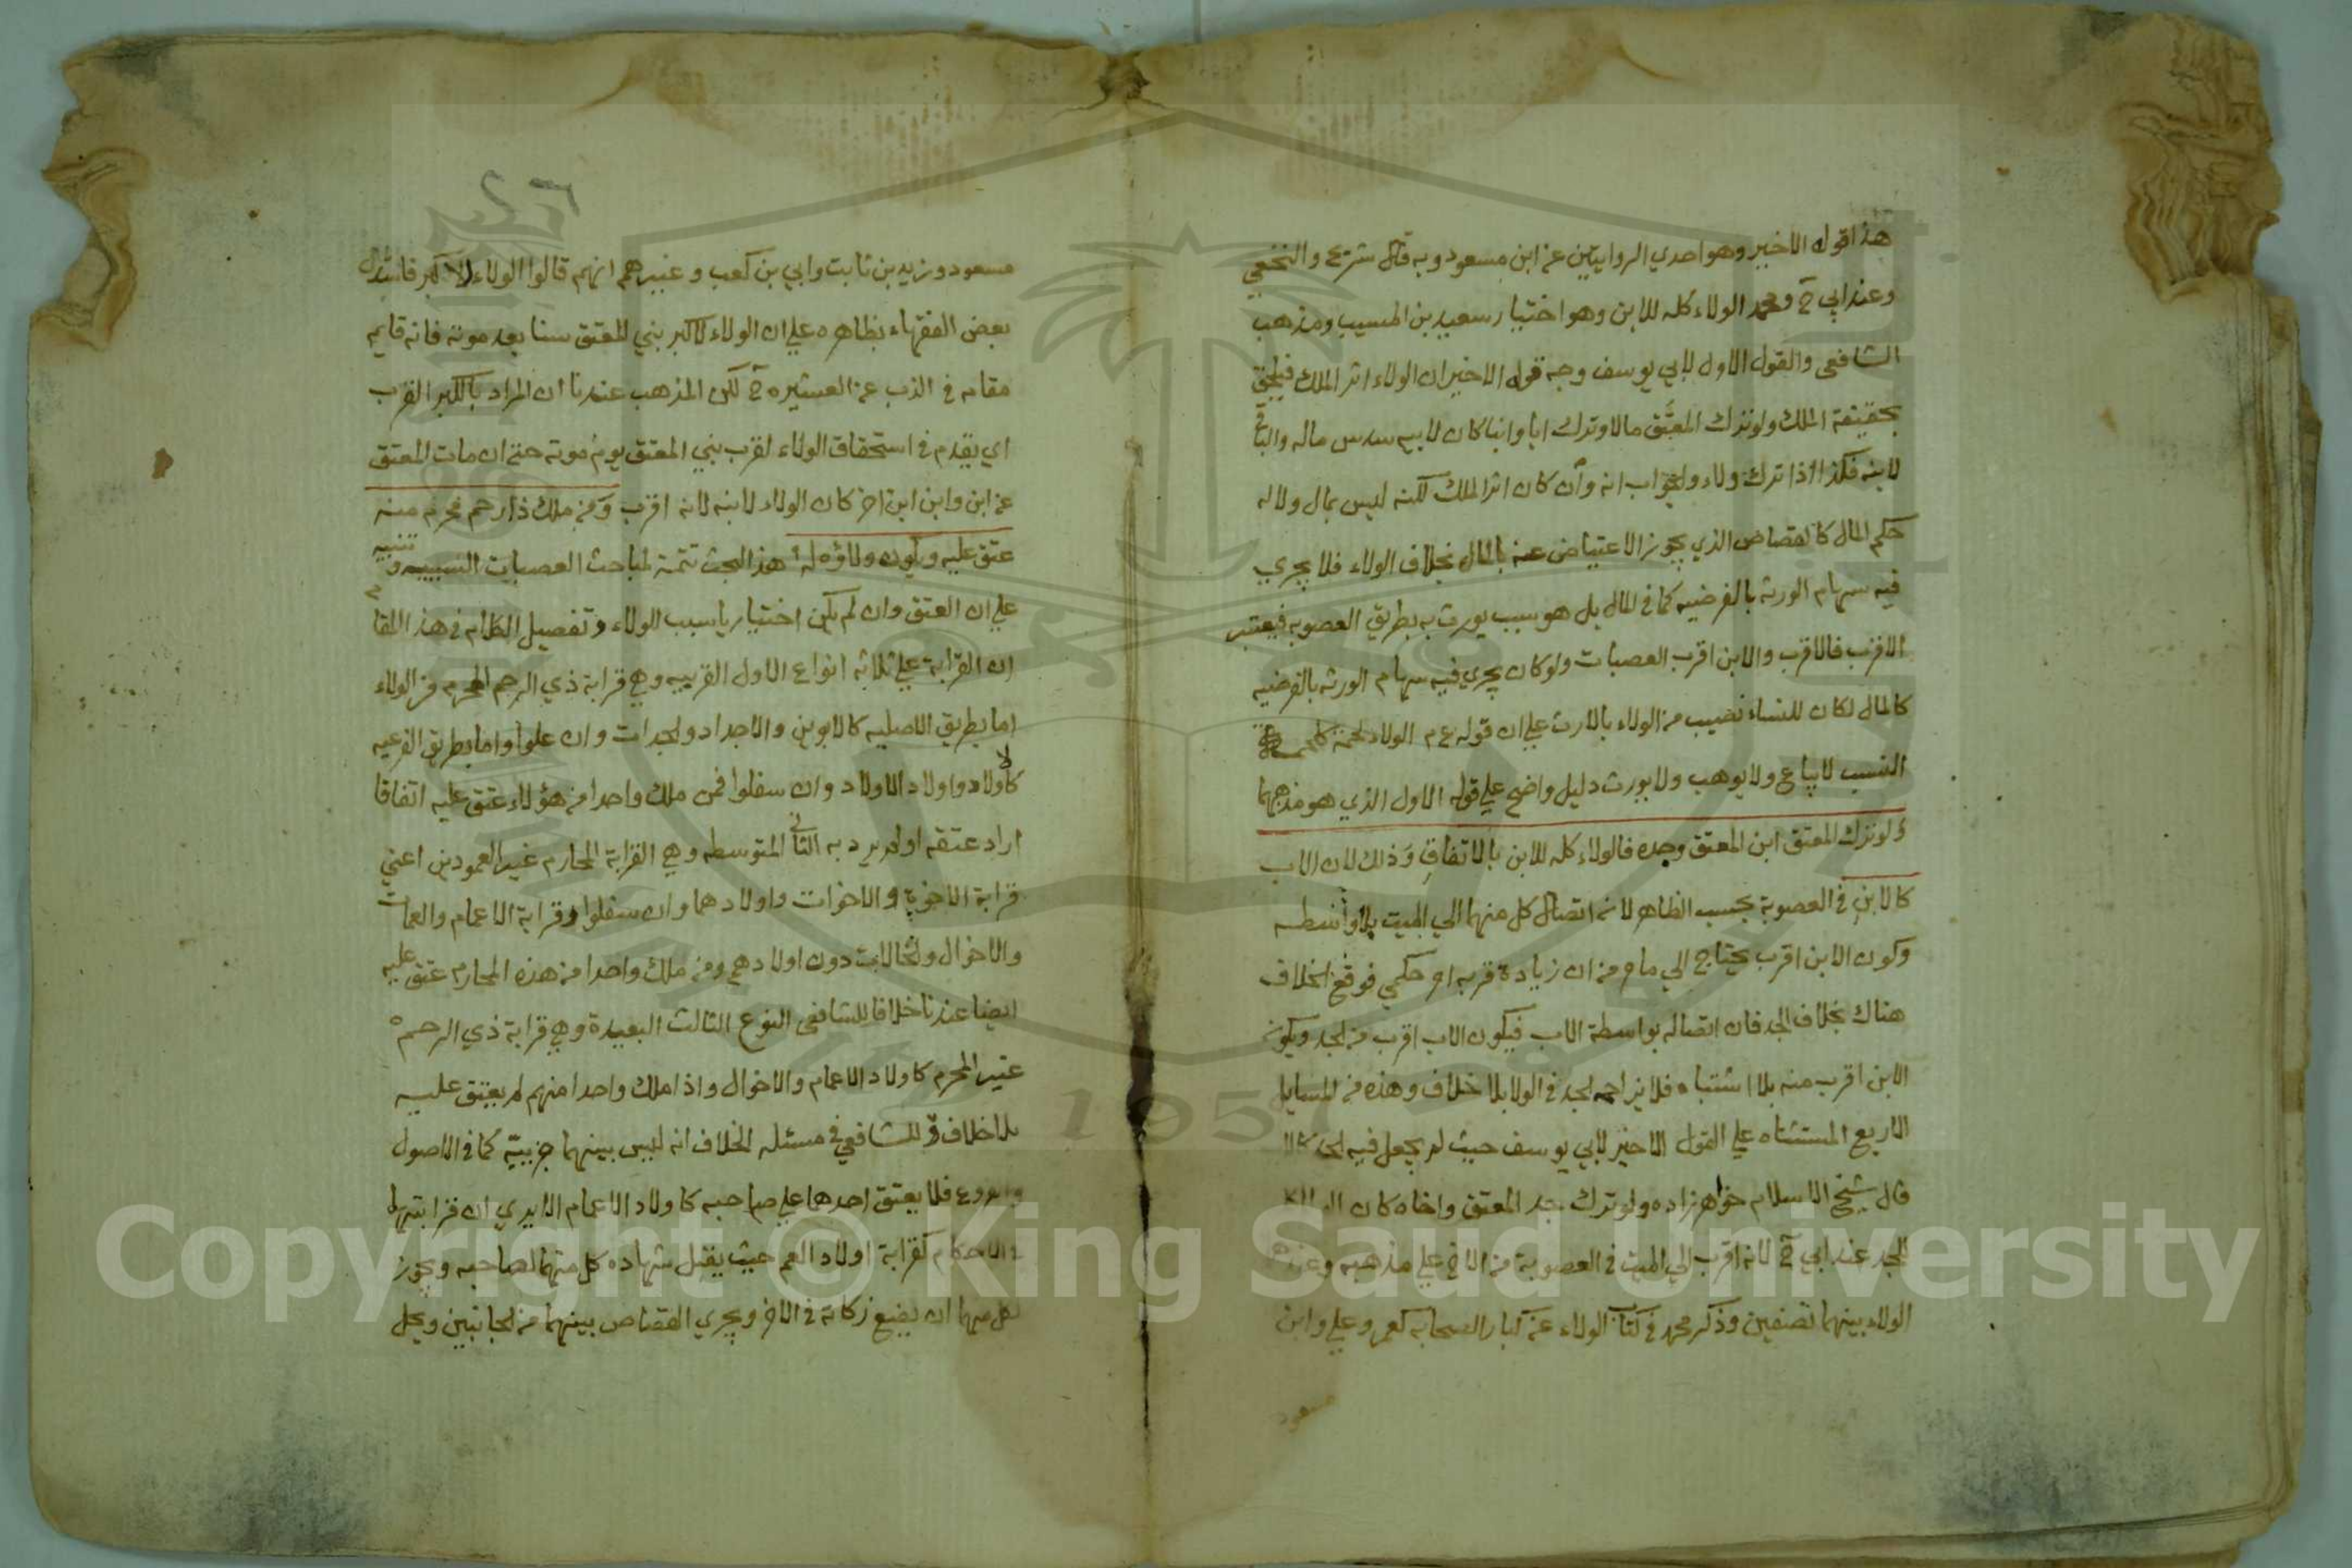 هذا قوله الاخير وهو احدي الروايتين عن ابن مسعود وبه قال شريح والنخعي
وعند ابي ح ومحمد الولاء كله للابن وهو اختيار سعيد بن المسيب ومذهب
الشافعي والقول الاول لابي يوسف وجه قوله الاخير ان الولاء اثر الملك فيلحق
بحقيقة الملك ولو ترك المعتَق مالا وترك ابا وابنا كان لابيه سدس ماله والباقي
لابنه فكذا اذا ترك ولاء والجواب انه وان كان اثر الملك لكنه ليس بمال ولا له
حكم المال كالقصاص الذي يجوز الاعتياض عنه بالمال بخلاف الولاء فلا يجري
فيه سهام الورثه بالفرضيه كما في المال بل هو سبب يورث به بطريق العصوبه فيعتبر
الاقرب فالاقرب والابن اقرب العصبات ولو كان يجري فيه سهام الورثه بالفرضيه
كالمال لكان للنساء نصيب من الولاء بالارث علي ان قوله ع م الولاء لحمة كلحمة
النسب لا يباع ولا يوهب ولا يورث دليل واضح علي قوله الاول الذي هو مذهبهما
ولو ترك المعتق ابن المعتق وجده فالولاء كله للابن بالاتفاق وذلك لان الاب
كالابن في العصوبة بحسب الظاهر لانه اتصال كل منهما الي الميت بلا واسطه
وكون الابن اقرب يحتاج الي ما م من ان زيادة قربه ام حكمي فوقع الخلاف
هناك بخلاف الجد فان اتصاله بواسطة الاب فيكون الاب اقرب من الجد ويكون
الابن اقرب منه بلا اشتباه فلا يزاحمه الجد في الولا بلا خلاف وهذه من المسايل
الاربع المستثناه علي القول الاخير لابي يوسف حيث لم يجعل فيه الجد كالا
قال شيخ الاسلام خواهرزاده ولو ترك جد المعتق واخاه كان
للجد عند ابي ح لانه اقرب الي الميت في العصوبة من الاخ علي مذهبه وعند
الولاء بينهما نصفين وذكر محمد في كتاب الولاء عن كبار الصحابه كعمر وعلي وابن
مسعود
مسعود وزيد بن ثابت وابي بن كعب وغيرهم انهم قالوا الولاء للاكبر فاستدل
بعض الفقهاء بظاهره علي ان الولاء لاكبر بني المعتق سنا بعد موته فانه قايم
مقامه في الذب عن العشيره ح لكن المذهب عندنا ان المراد بالكبر القرب
اي يقدم في استحقاق الولاء لقرب بني المعتق يوم موته حتي ان مات المعتق
عن ابن وابن ابن اخر كان الولاء لابنه لانه اقرب ومن ملك ذا رحم محرم منه
عتق عليه ويكون ولاؤه له هذا البحث تتمة لمباحث العصبات السببيه وتنبيه
علي ان العتق وان لم يكن اختياريا سبب للولاء وتفصيل الكلام في هذا المقام
ان القرابة علي ثلاثه انواع الاول القريبه وهي قرابة ذي الرحم المحرم من الولاء
اما بطريق الاصليه كالابوين والاجداد والجدات وان علوا واما بطريق الفرعيه
كالاولاد واولاد الاولاد وان سفلوا فمن ملك واحدا من هؤلاء عتق عليه اتفاقا
اراد عتقه اولم يرد به الثاني المتوسطه وهي القرابة المحارم غير العمودين اعني
قرابة الاخوة والاخوات واولادهما وان سفلوا وقرابة الاعمام والعمات
والاخوال والخالات دون اولادهم ومن ملك واحدا من هذه المحارم عتق عليه
ايضا عندنا خلافا للشافعي النوع الثالث البعيدة وهي قرابة ذي الرحم
غير المحرم كاولاد الاعمام والاخوال واذا ملك واحدا منهم لم يعتق عليه
بلا خلاف وللشافعي في مسئله الخلاف انه ليس بينهما جزييّة كما في الاصول
والفروع فلا يعتق احدهما علي صاحبه كاولاد الاعمام الا يري ان قرابتهما
في الاحكام كقرابة اولاد العم حيث يقبل شهاده كل منهما لصاحبه ويجوز
لكل منهما ان يضع زكاته في الاخر ويجري القصاص بينهما من الجانبين ويحل
Copyright © King Saud University
1957